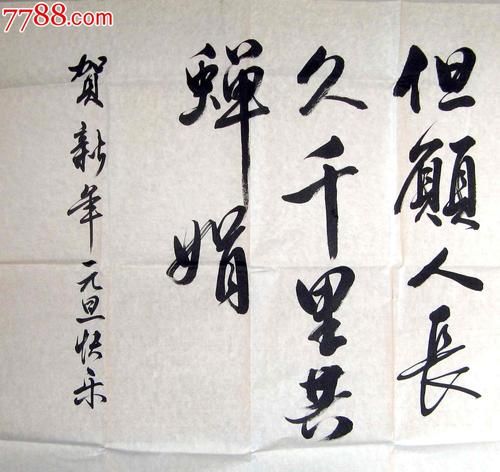 7788.com
但願人長
久千里共
蟬娟
賀新年元旦快乐